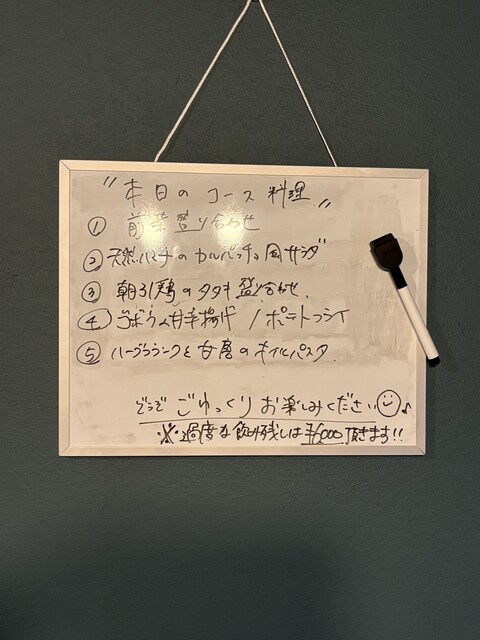 "本日のコース料理"
① 前菜盛り合わせ
② 天然ハマチのカルパッチョ風サラダ
③ 朝引鶏のタタキ盛り合わせ
④ ゴボウの甘辛揚げ / ポテトフライ
⑤ ハーブ と のオイルパスタ
どうぞごゆっくりお楽しみください♪
※過度な飲み残しは¥6000頂きます!!